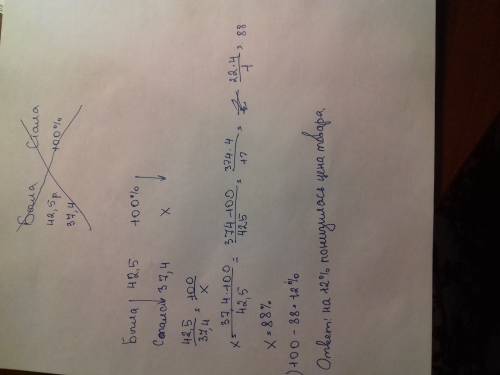 Была Стала
42,5 р 100%
37,4
Была 42,5 100%
Стала 37,4 x
42,5/37,4 = 100/x
x = 37,4·100/42,5 = 374·100/425 = 374·4/17 = 22·4/1 = 88
x = 88%
) 100 - 88 = 12%
Ответ: на 12% понизилась цена товара.